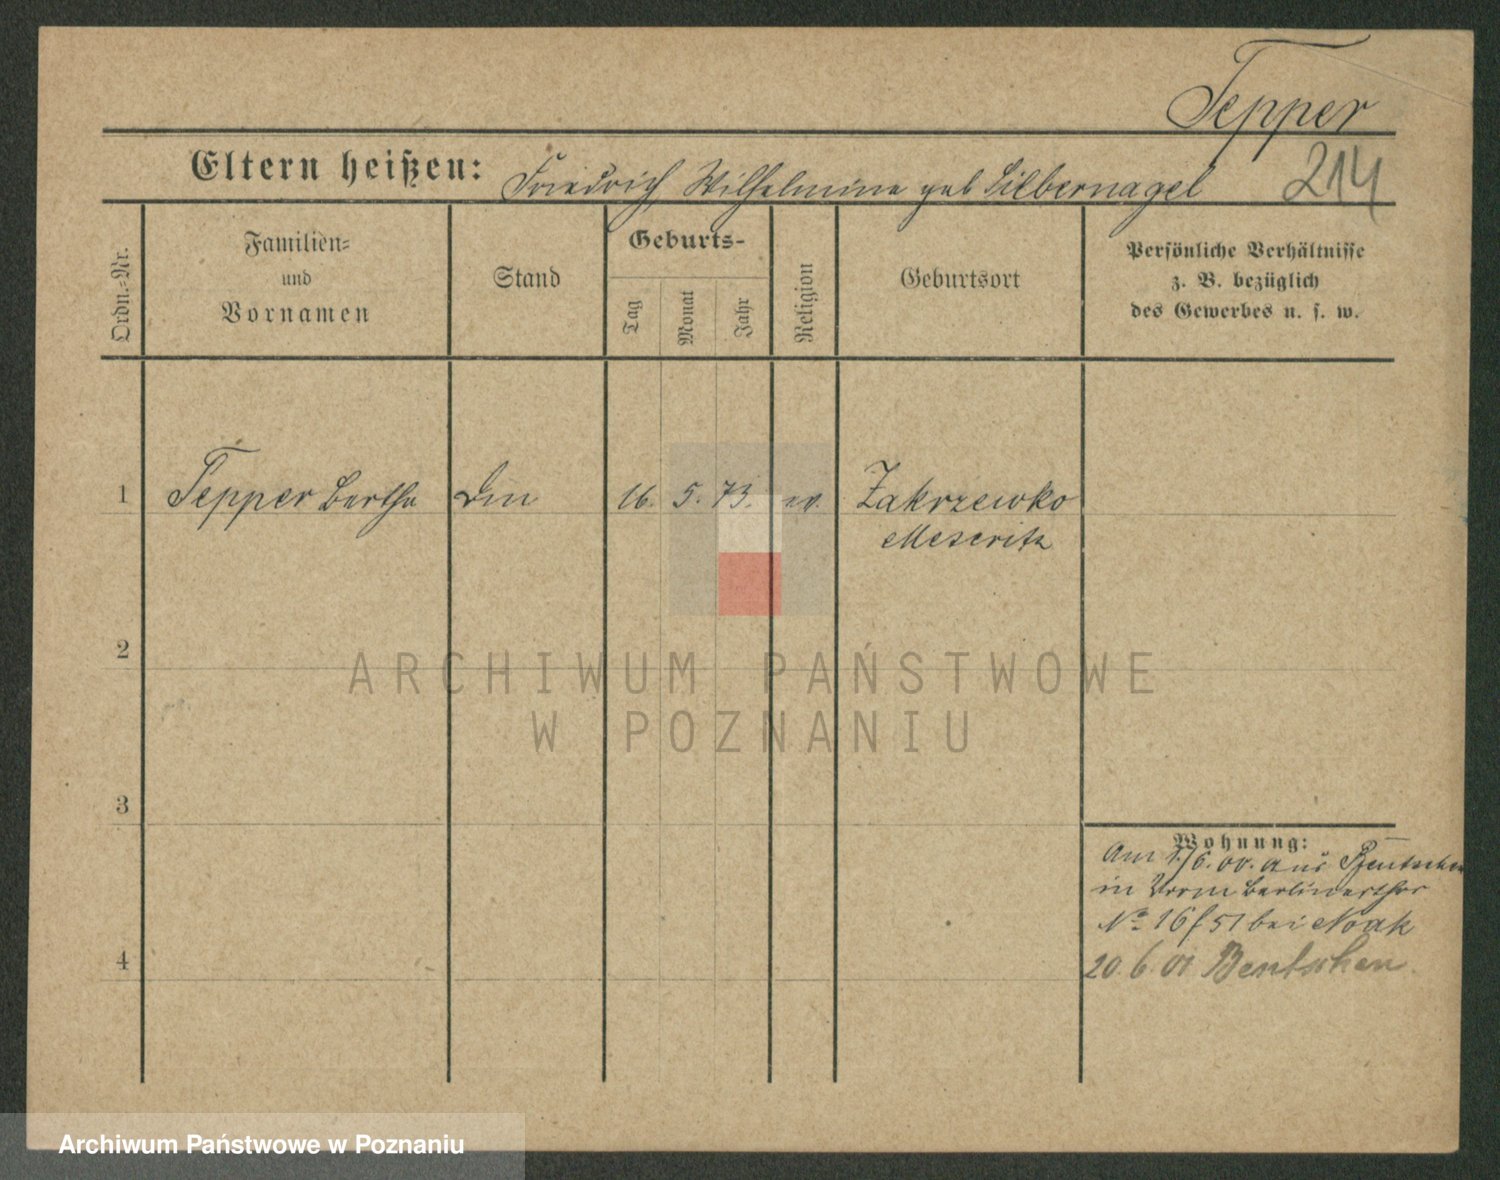 Tepper
Eltern heißen: Friedrich Wilhelmine geb Silbernagel
214
Ordn.-Nr.
Familien-
und
Vornamen
Stand
Geburts-
Tag
Monat
Jahr
Religion
Geburtsort
Persönliche Verhältnisse
z. B. bezüglich
des Gewerbes u. s. w.
1 Tepper Bertha 16. 5. 73. ev. Zakrzewko
Meseritz
2
3
4
Wohnung:
Am 1/6.00. aus Bentschen
in Berlinerthor
No 16/51 bei Noak
20.6.01 Bentschen
ARCHIWUM PAŃSTWOWE
W POZNANIU
Archiwum Państwowe w Poznaniu